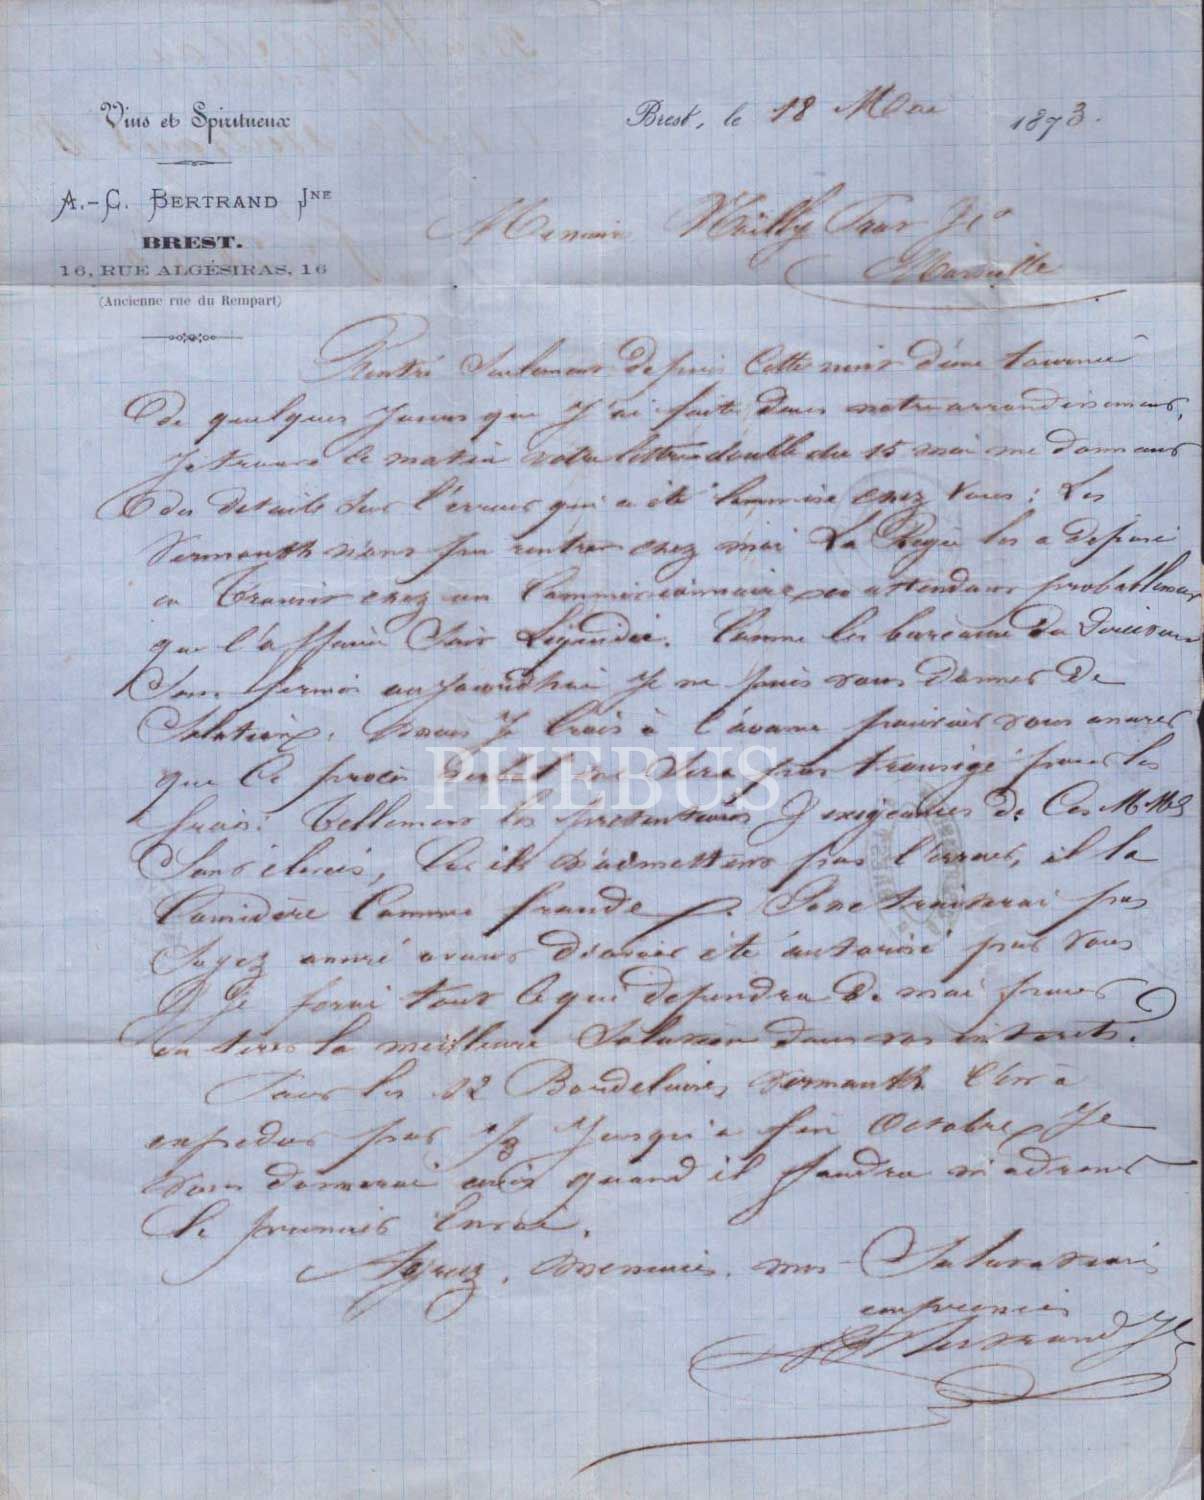 Vins et Spiritueux
A.-C. BERTRAND JNE
BREST.
16, RUE ALGÉSIRAS, 16
(Ancienne rue du Rempart)
Brest, le 18 Mai 1873.
Messieurs Noilly Prat &
Marseille
Rentré Seulement depuis Cette nuit d'une tournée
de quelques Jours que J'ai faite dans notre arrondissement,
Je trouve Ce matin votre lettre double du 15 mai me donnant
des details Sur l'erreur qui a été Commise chez Vous; Les
Vermouth n'ont pu rentrer chez moi La Regie les a déposé
en Transit chez un Commissionnaire en attendant probablement
que l'affaire Soit Liquidée. Comme les bureaux du Directeur
Sont fermés aujourdhui Je ne puis vous donner de
Solution, mais Je Crois à l'avance pouvoir vous assurer
que Ce procès Verbal ne Sera pas transigé pour les
frais. Tellement les pretentions & exigeances de Ces MMrs
Sont élevés, Car ils n'admettent pas l'erreur, il la
Considère Comme fraude. Je ne traiterai pas
Soyez assuré avant d'avoir été autorisé par Vous
& Je ferai tout Ce qui dependra de moi pour
en tirer la meilleure Solution dans vos interets.
Pour les 12 Bordelaises Vermouth C'est à
expedier par Jusqu'a fin Octobre, Je
vous donnerai avis quand il faudra m'adresser
le premier Envoi.
Agreez, Messieurs, mes Salutations
empressées
Bertrand Jne
PHEBUS